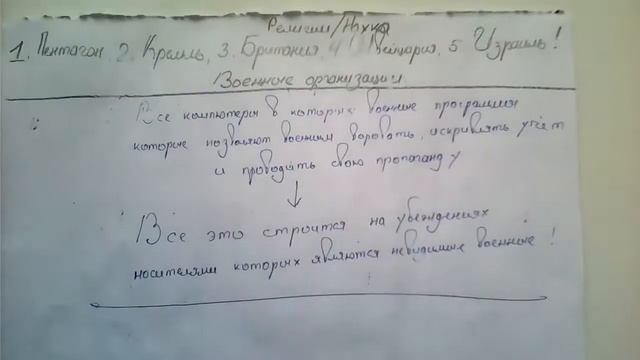 Религии/Наука
1. Пентагон, 2. Кремль, 3. Британия, 4. Швейцария, 5. Израиль!
Военные организации
Все компьютеры в которых военные программы
которые позволяют военным воровать, искривлять учёт
и проводить свою пропаганду
Все это строится на убеждениях
носителями которых являются невидимые военные!